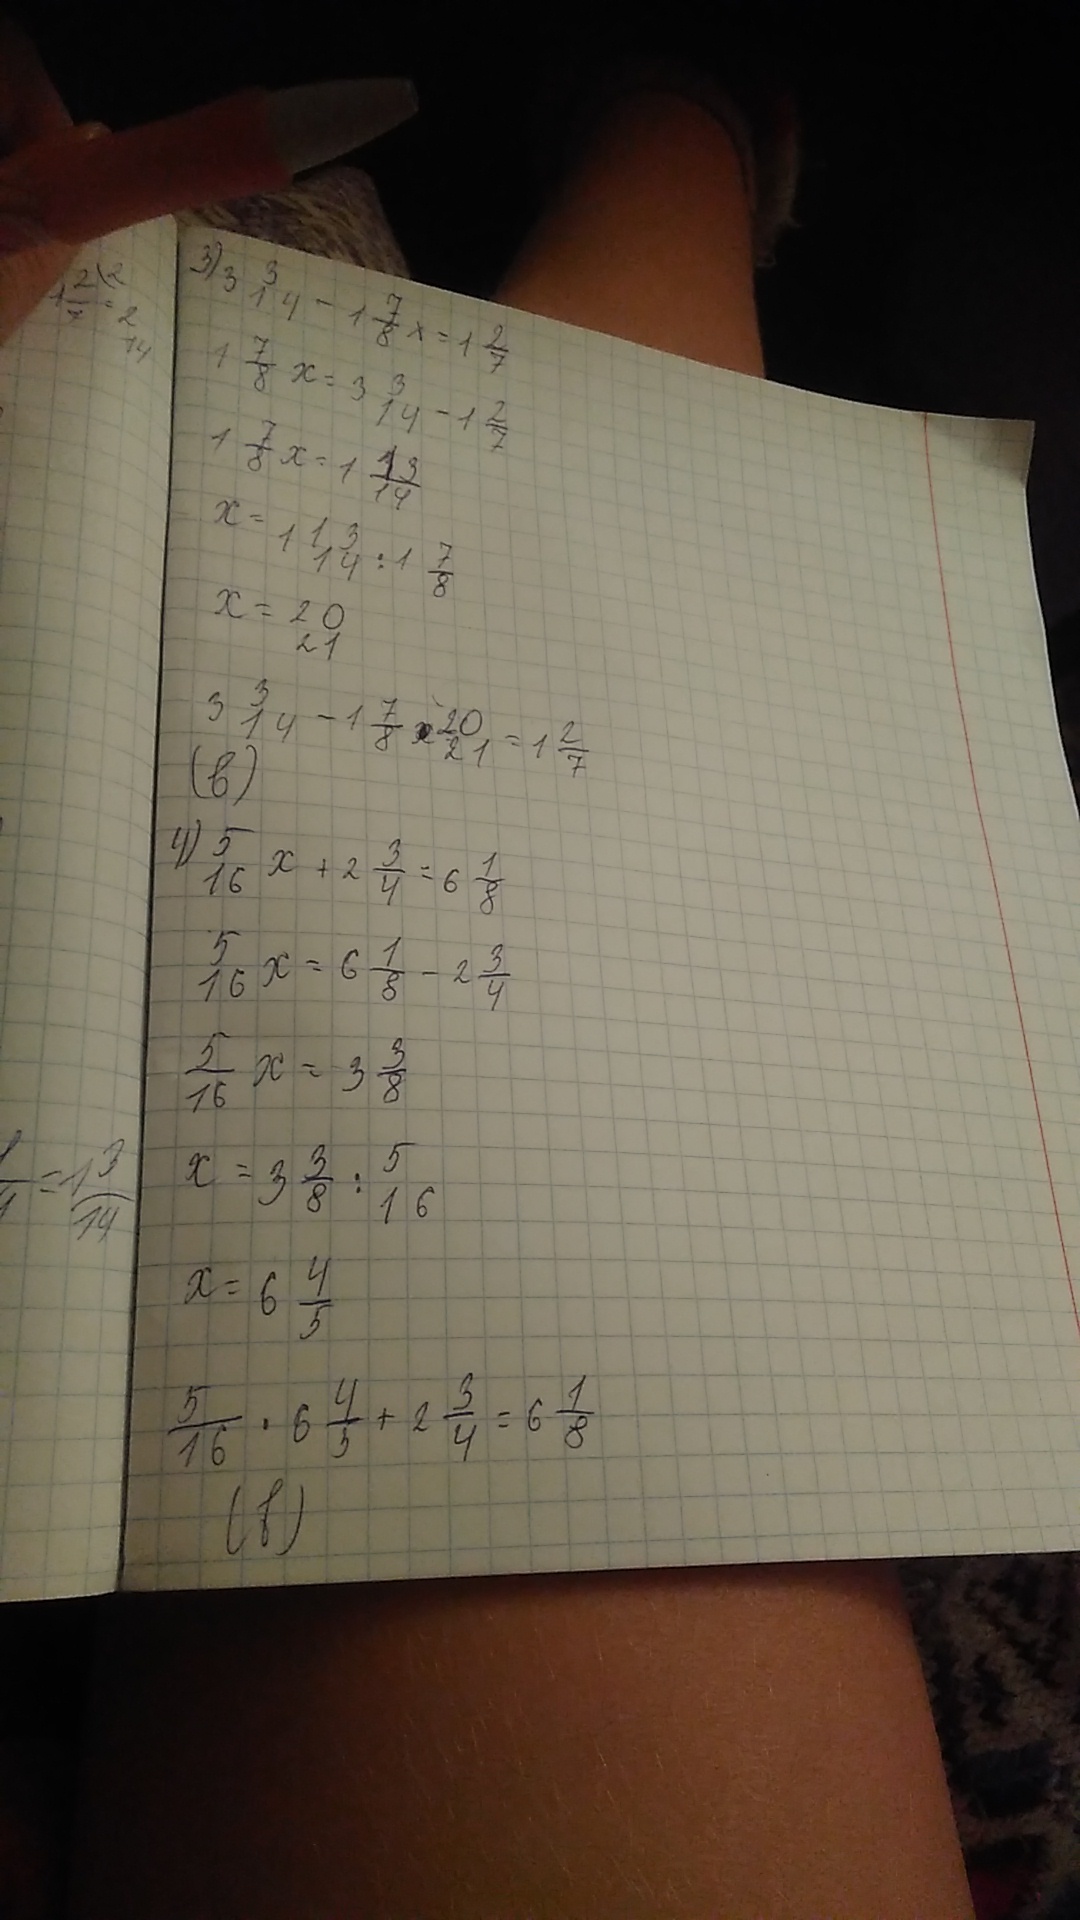 1 2/7 \2 = 2/14
3) 3 3/14 - 1 7/8 x = 1 2/7
1 7/8 x = 3 3/14 - 1 2/7
1 7/8 x = 1 13/14
x = 1 13/14 : 1 7/8
x = 20/21
3 3/14 - 1 7/8 x 20/21 = 1 2/7
(в)
4) 5/16 x + 2 3/4 = 6 1/8
5/16 x = 6 1/8 - 2 3/4
5/16 x = 3 3/8
= 1 3/14
x = 3 3/8 : 5/16
x = 6 4/5
5/16 · 6 4/5 + 2 3/4 = 6 1/8
(в)